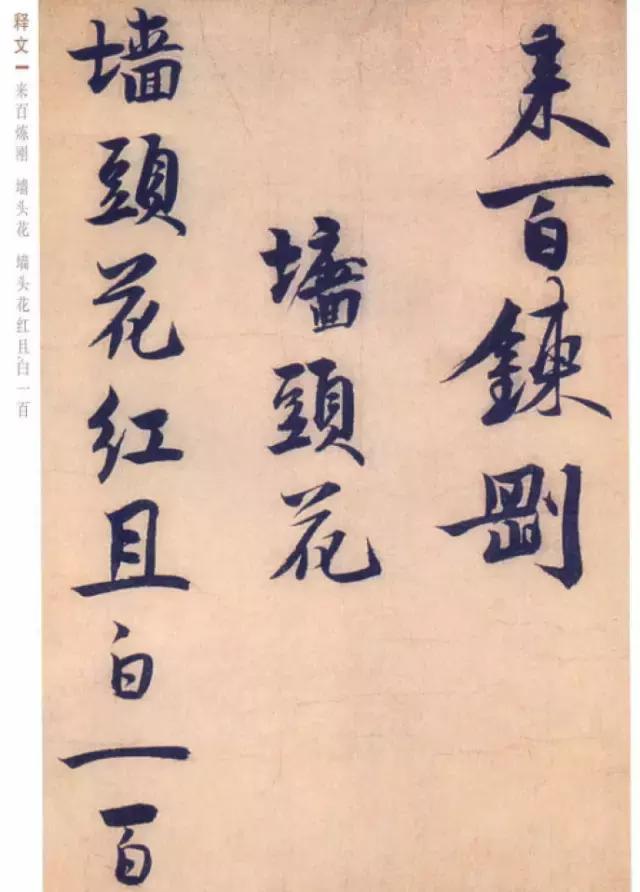 来百鍊剛
墙頭花
墙頭花红且白一百
释文
来百炼刚 墙头花 墙头花红且白一百